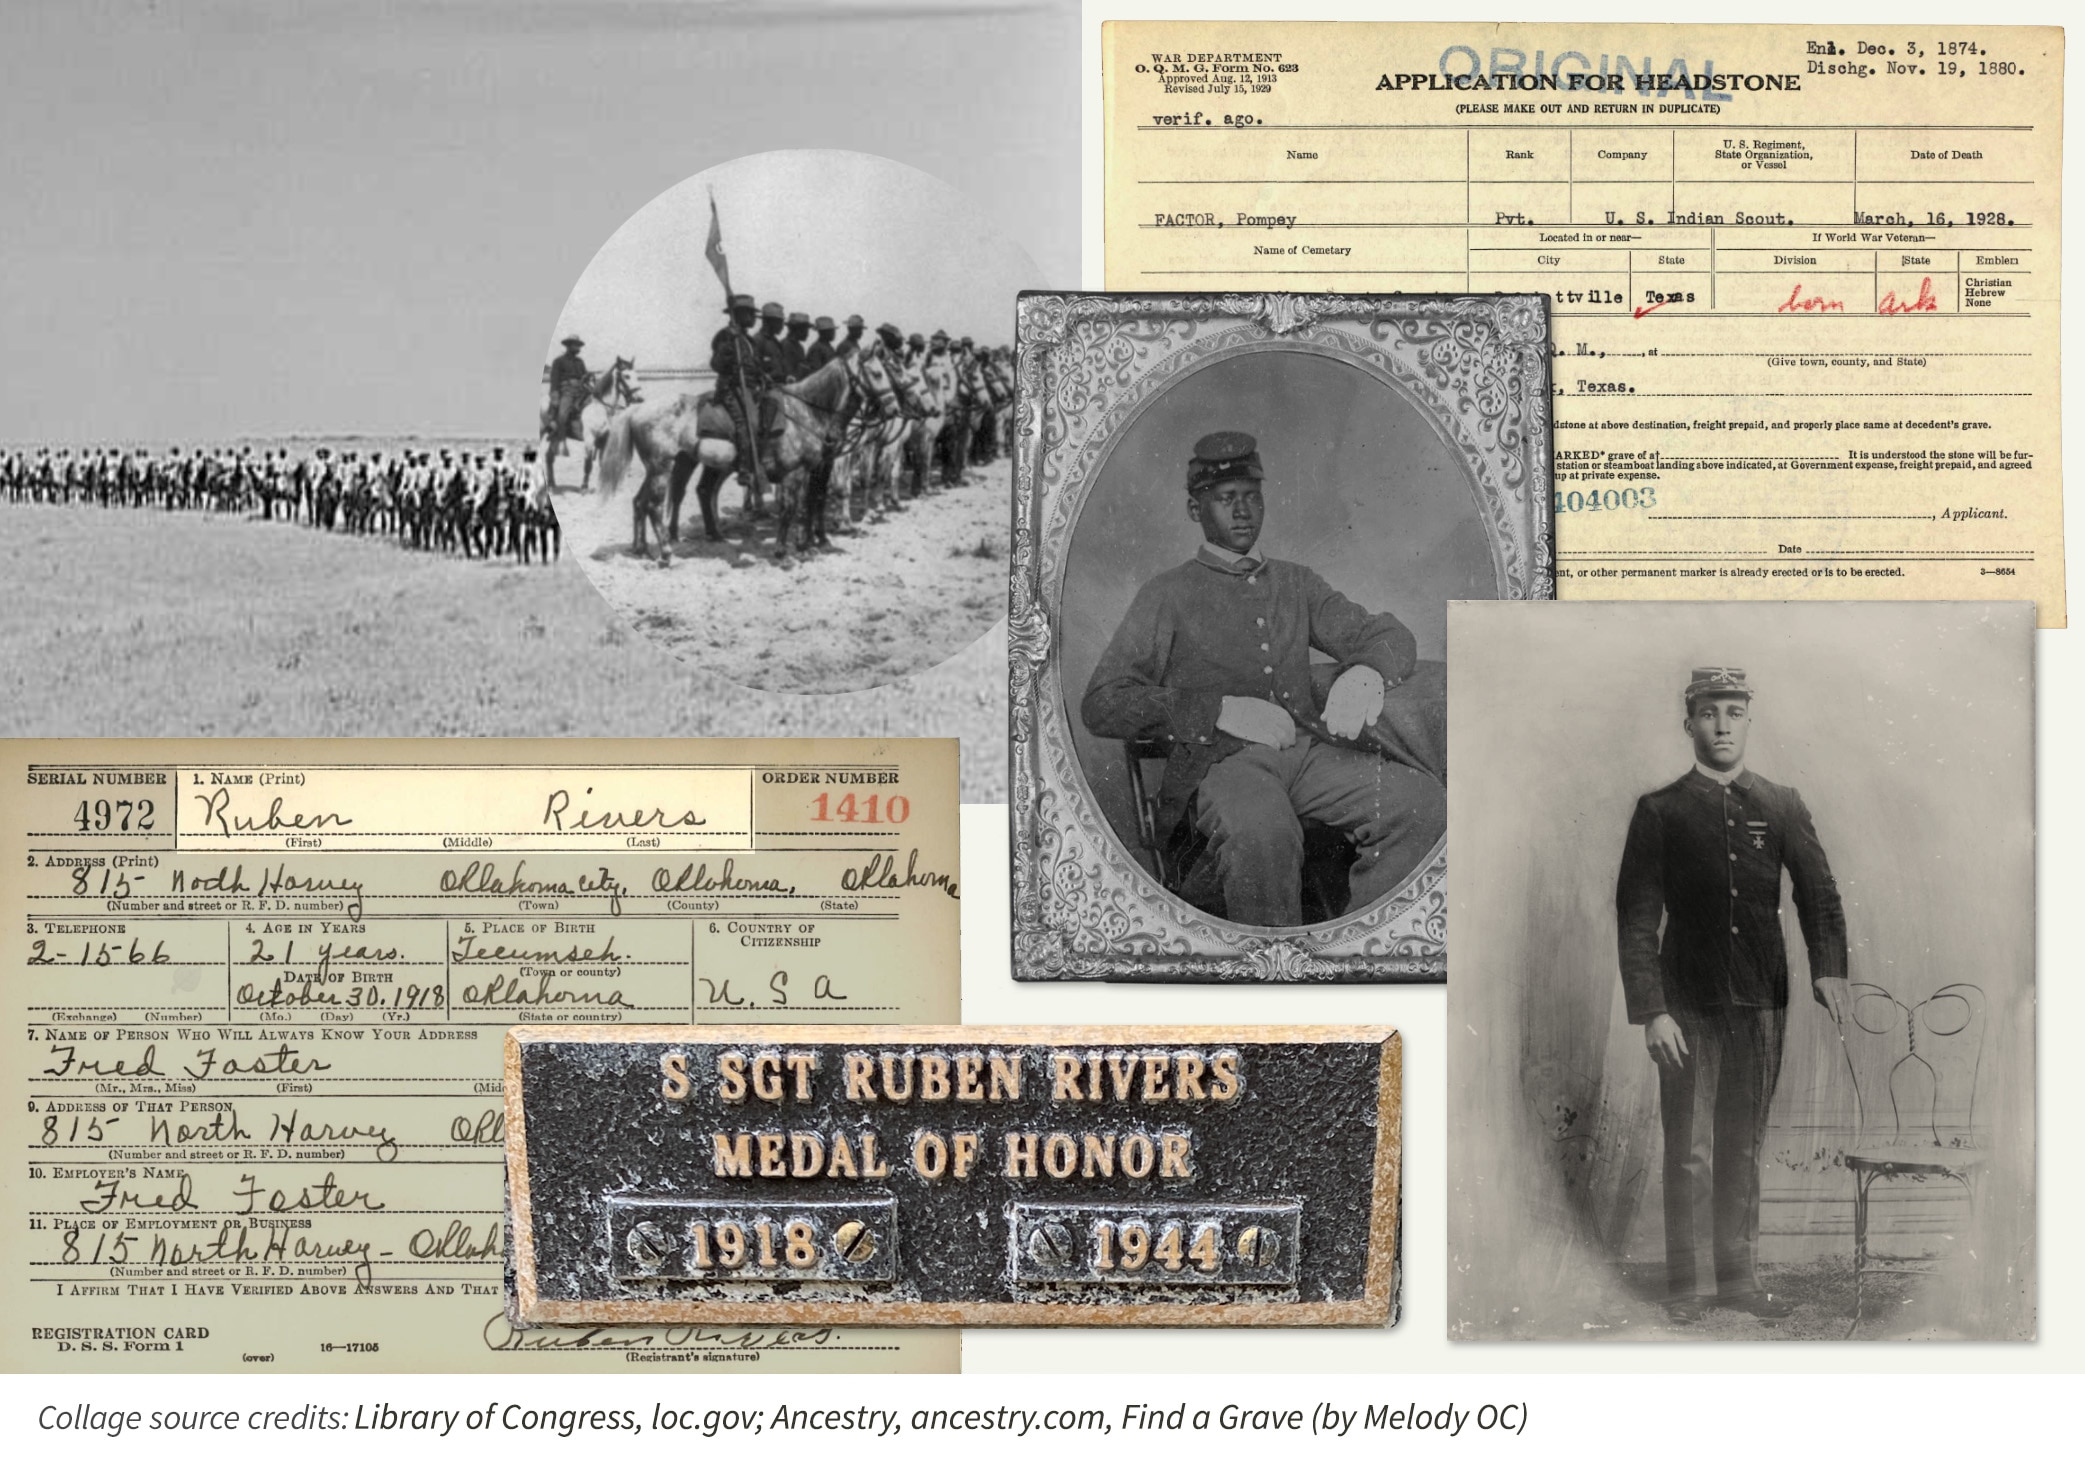 WAR DEPARTMENT
O. Q. M. G. Form No. 623
Approved Aug. 12, 1913
Revised July 15, 1929
ORIGINAL
APPLICATION FOR HEADSTONE
(PLEASE MAKE OUT AND RETURN IN DUPLICATE)
Enl. Dec. 3, 1874.
Dischg. Nov. 19, 1880.
verif. ago.
Name Rank Company U. S. Regiment, State Organization, or Vessel Date of Death
FACTOR, Pompey Pvt. U. S. Indian Scout. March, 16, 1928.
Name of Cemetary Located in or near— If World War Veteran—
City State Division State Emblem
ttville Texas born ark Christian
Hebrew
None
M., , at
(Give town, county, and State)
, Texas.
dstone at above destination, freight prepaid, and properly place same at decedent's grave.
ARKED* grave of at It is understood the stone will be fur-
station or steamboat landing above indicated, at Government expense, freight prepaid, and agreed
up at private expense.
404003
, Applicant.
Date
ent, or other permanent marker is already erected or is to be erected.
3—8654
SERIAL NUMBER 1. NAME (Print) ORDER NUMBER
4972 Ruben Rivers 1410
(First) (Middle) (Last)
2. ADDRESS (Print)
815 North Harvey Oklahoma city, Oklahoma, Oklahoma
(Number and street or R. F. D. number) (Town) (County) (State)
3. TELEPHONE 4. AGE IN YEARS 5. PLACE OF BIRTH 6. COUNTRY OF CITIZENSHIP
2-1566 21 years. Tecumseh.
DATE OF BIRTH (Town or county)
October 30. 1918 Oklahoma U. S a
(Exchange) (Number) (Mo.) (Day) (Yr.) (State or country)
7. NAME OF PERSON WHO WILL ALWAYS KNOW YOUR ADDRESS
Fred Foster
(Mr., Mrs., Miss) (First) (Midd
9. ADDRESS OF THAT PERSON
815 North Harvey Okl
(Number and street or R. F. D. number)
10. EMPLOYER'S NAME
Fred Foster
11. PLACE OF EMPLOYMENT OR BUSINESS
815 North Harvey - Oklah
(Number and street or R. F. D. number)
I AFFIRM THAT I HAVE VERIFIED ABOVE ANSWERS AND THAT
REGISTRATION CARD
D. S. S. Form 1
(over)
16—17105
Ruben Rivers.
(Registrant's signature)
S SGT RUBEN RIVERS
MEDAL OF HONOR
1918 1944
Collage source credits: Library of Congress, loc.gov; Ancestry, ancestry.com, Find a Grave (by Melody OC)